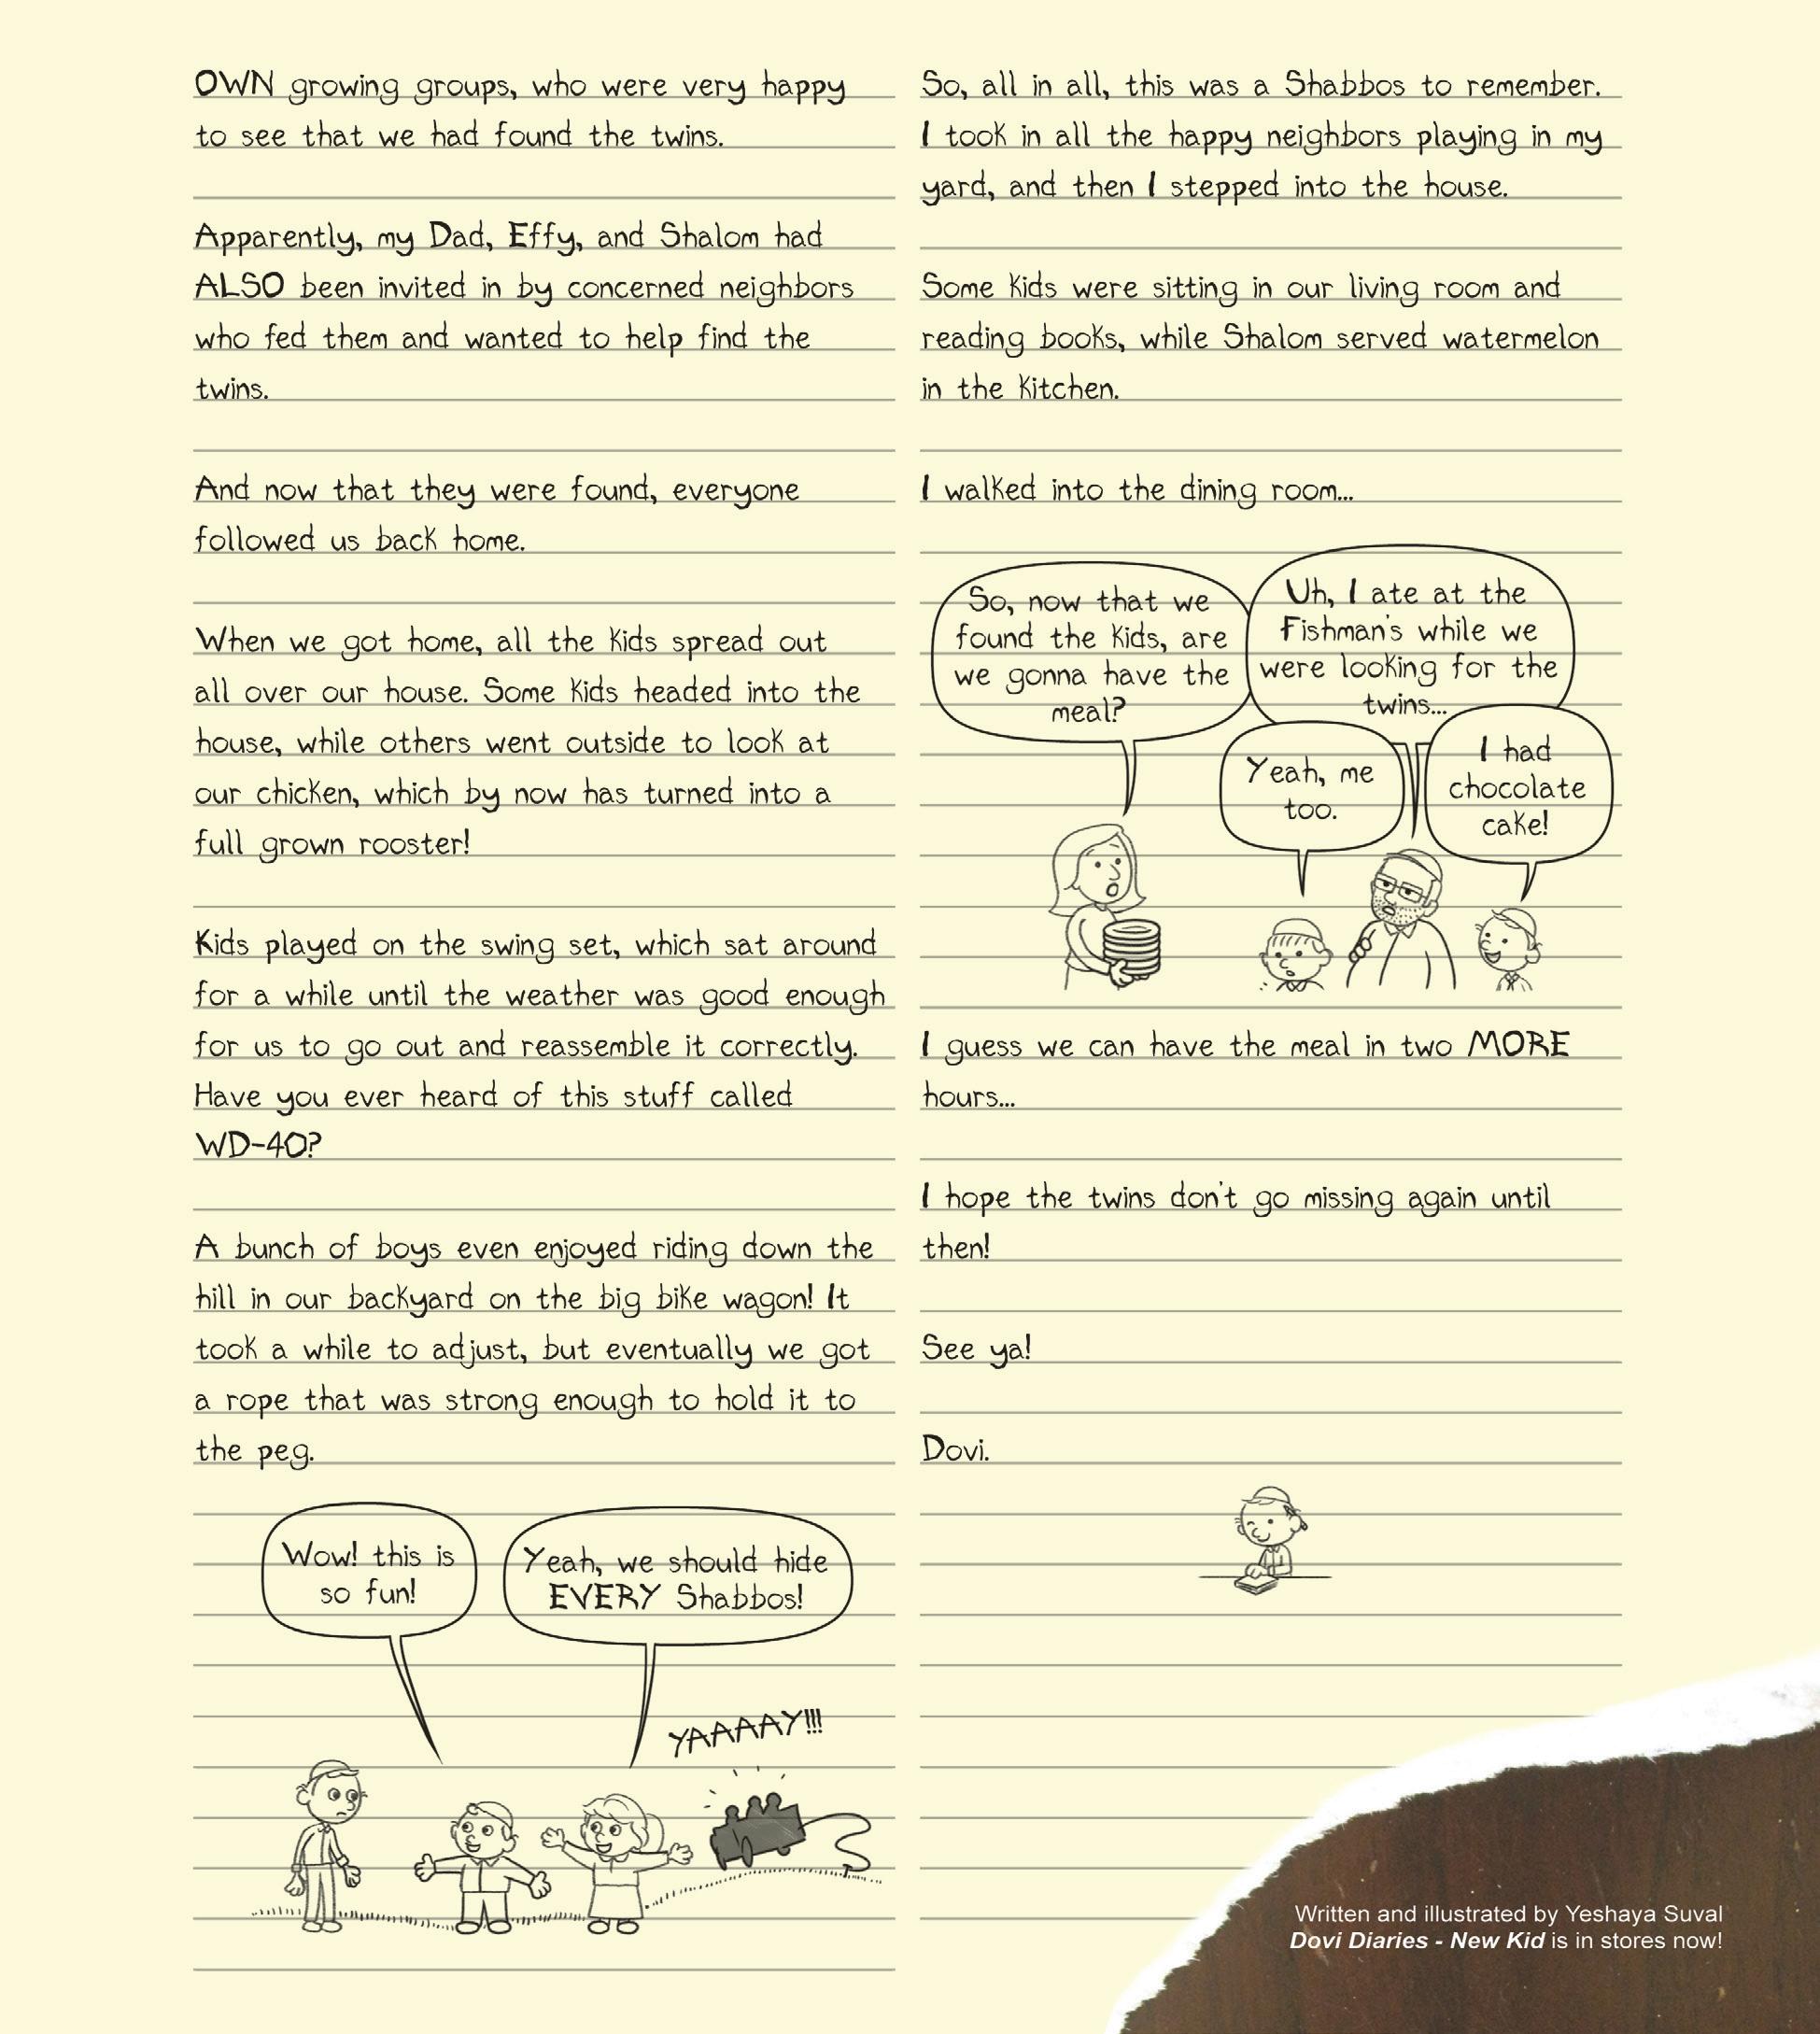 OWN growing groups, who were very happy
to see that we had found the twins.
Apparently, my Dad, Effy, and Shalom had
ALSO been invited in by concerned neighbors
who fed them and wanted to help find the
twins.
And now that they were found, everyone
followed us back home.
When we got home, all the kids spread out
all over our house. Some kids headed into the
house, while others went outside to look at
our chicken, which by now has turned into a
full grown rooster!
Kids played on the swing set, which sat around
for a while until the weather was good enough
for us to go out and reassemble it correctly.
Have you ever heard of this stuff called
WD-40?
A bunch of boys even enjoyed riding down the
hill in our backyard on the big bike wagon! It
took a while to adjust, but eventually we got
a rope that was strong enough to hold it to
the peg.
Wow! this is
so fun!
Yeah, we should hide
EVERY Shabbos!
YAAAAY!!!
So, all in all, this was a Shabbos to remember.
I took in all the happy neighbors playing in my
yard, and then I stepped into the house.
Some kids were sitting in our living room and
reading books, while Shalom served watermelon
in the kitchen.
I walked into the dining room...
So, now that we
found the kids, are
we gonna have the
meal?
Uh, I ate at the
Fishman's while we
were looking for the
twins...
Yeah, me
too.
I had
chocolate
cake!
I guess we can have the meal in two MORE
hours...
I hope the twins don't go missing again until
then!
See ya!
Dovi.
Written and illustrated by Yeshaya Suval
Dovi Diaries - New Kid is in stores now!